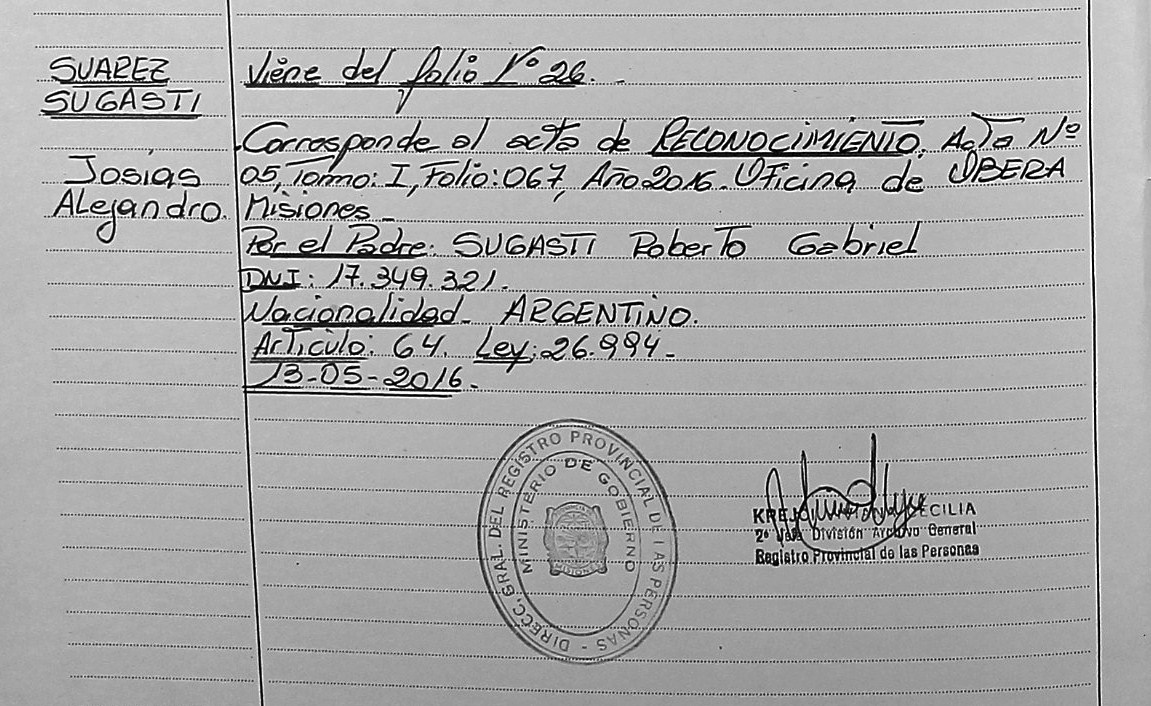 SUAREZ
SUGASTI
Josías
Alejandro.
Viene del folio Nº 26.-
Corresponde al acta de RECONOCIMIENTO. Acta Nº
05, Tomo: I, Folio: 067, Año 2016. Oficina de OBERA
Misiones-
Por el Padre: SUGASTI Roberto Gabriel
DNI: 17.349.321.
Nacionalidad- ARGENTINO.
Artículo: 64. Ley: 26.994-
13-05-2016-
DIRECC. GRAL. DEL REGISTRO PROVINCIAL DE LAS PERSONAS -
MINISTERIO DE GOBIERNO
MISIONES
CECILIA
2º Jefe División Archivo General
Registro Provincial de las Personas